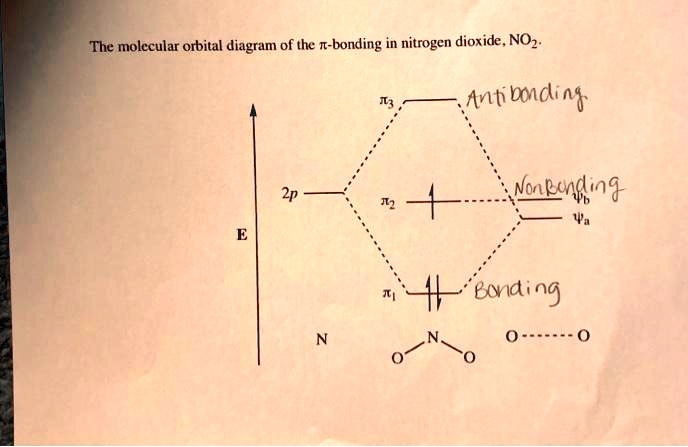 The molecular orbital diagram of the π-bonding in nitrogen dioxide, NO₂.
π₃ Antibonding
2p
π₂ NonBonding
Ψb
Ψa
E
π₁ Bonding
N
O N O
O O